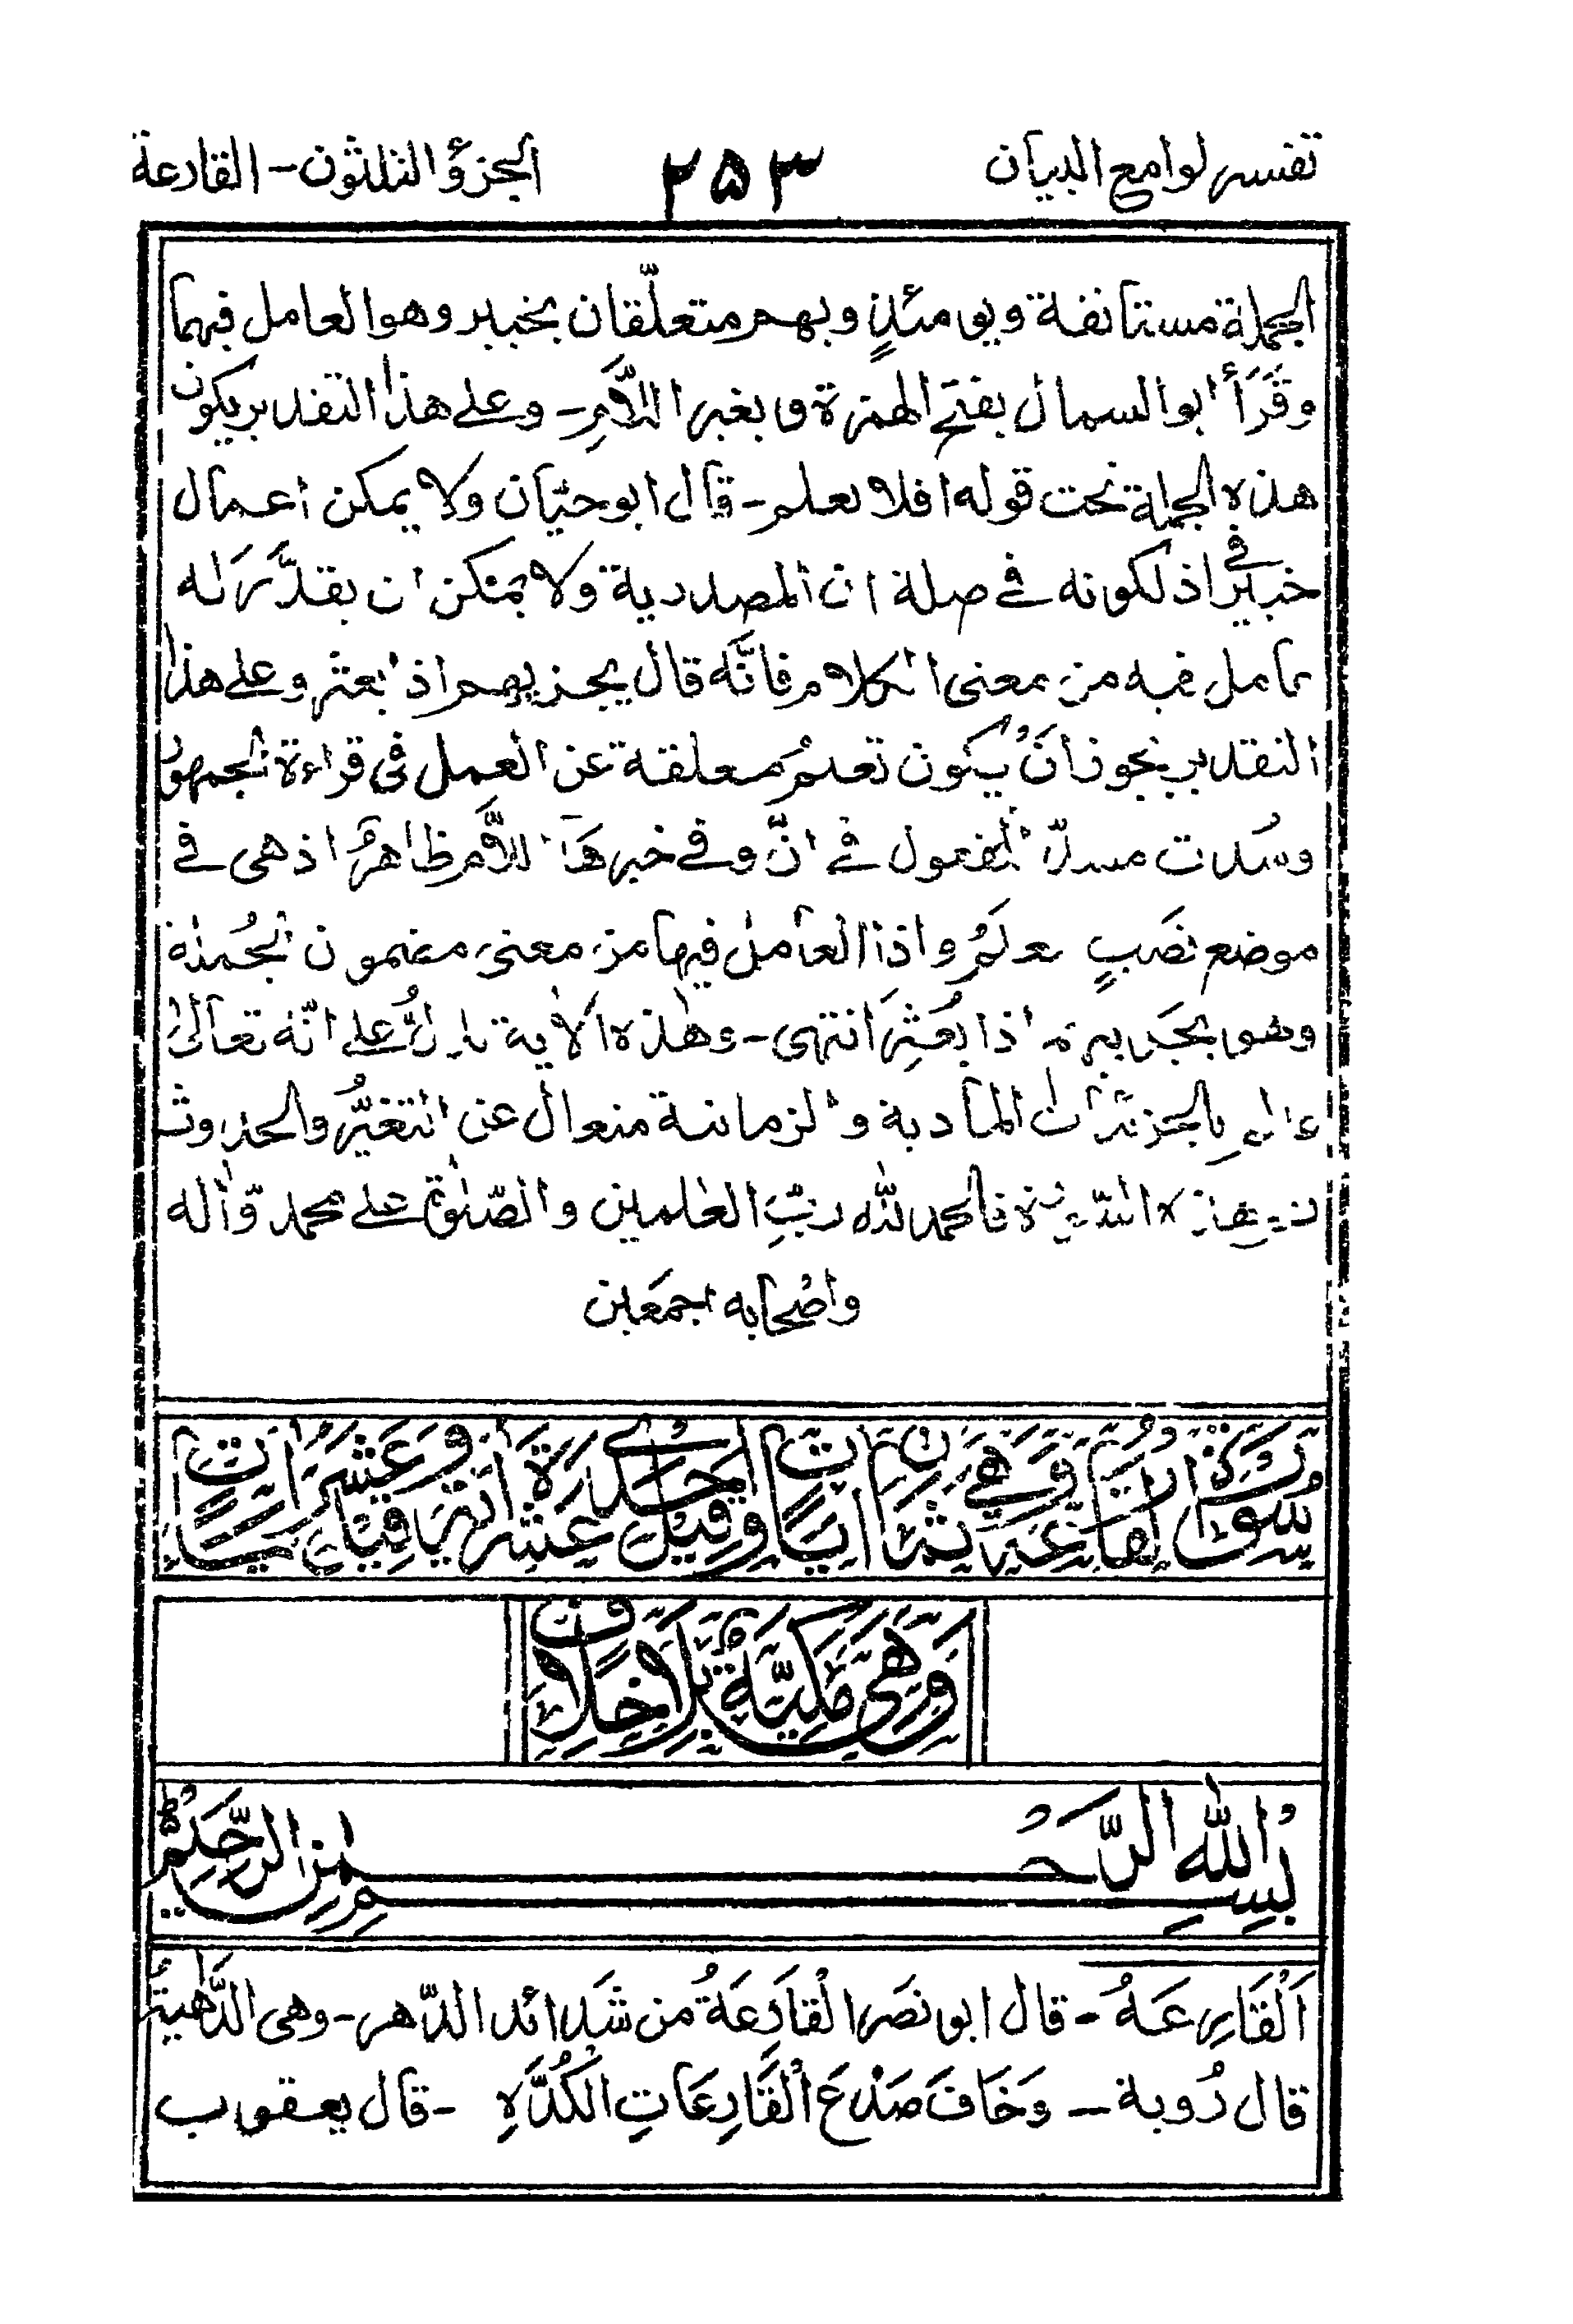 تفسير لوامع البيان
٢٥٣
الجزؤ الثلثون - القارعة
الجملة مستانفة ويومئذٍ وبهم متعلّقان بخبير وهو العامل فيهما
وقَرَأَ ابو السمال بفتح الهمزة وبغير اللّامِ - وعلى هذا التقدير يكون
هذه الجملة تحت قوله افلا يعلم - قال ابو حيّان ولا يمكن اعمال
خبير في اذ لكونه في صلة ان المصدرية ولا يمكن ان يقدَّر له
عامل فيه من معنى الكلام فانَّه قال يجزيهم اذا بعثر وعلى هذا
التقدير يجوز اَنْ يكون تعلمُ معلقة عن العمل في قراءة الجمهور
وسُدت مسدّ المفعول في انّ وفي خبرها اللَّام ظاهرٌ اذ هي في
موضع نصَبٍ بعلَمُ واذا العامل فيها من معنى مضمون الجُملة
وهو يجزيهم اذا بُعْثِرَ انتهى - وهٰذه الاٰية تدلُّ على انّه تعالىٰ
عالم بالجزئيات المادية والزمانية منعال عن التغيُّر والحدوث
فالحمد للّٰه ربِّ العٰلمين والصّلوٰة على محمد وّاٰله
واصْحابه اجمعين
سُورة القارعة مكية وهي ثمان اٰيات وقيل عشر اٰيات
وَهِيَ مَكِيَّةٌ بِلَا خِلَافٍ
بِسْمِ اللّٰهِ الرَّحْمٰنِ الرَّحِيْمِ
اَلْقَارِعَةُ - قال ابو نصَر الْقَارِعَةُ من شَدائد الدّهر - وهي الدَّاهية
قال رُوبة - وَخَافَ صَدْعَ الْقَارِعَاتِ الكُدَّهِ - قال يعقوب